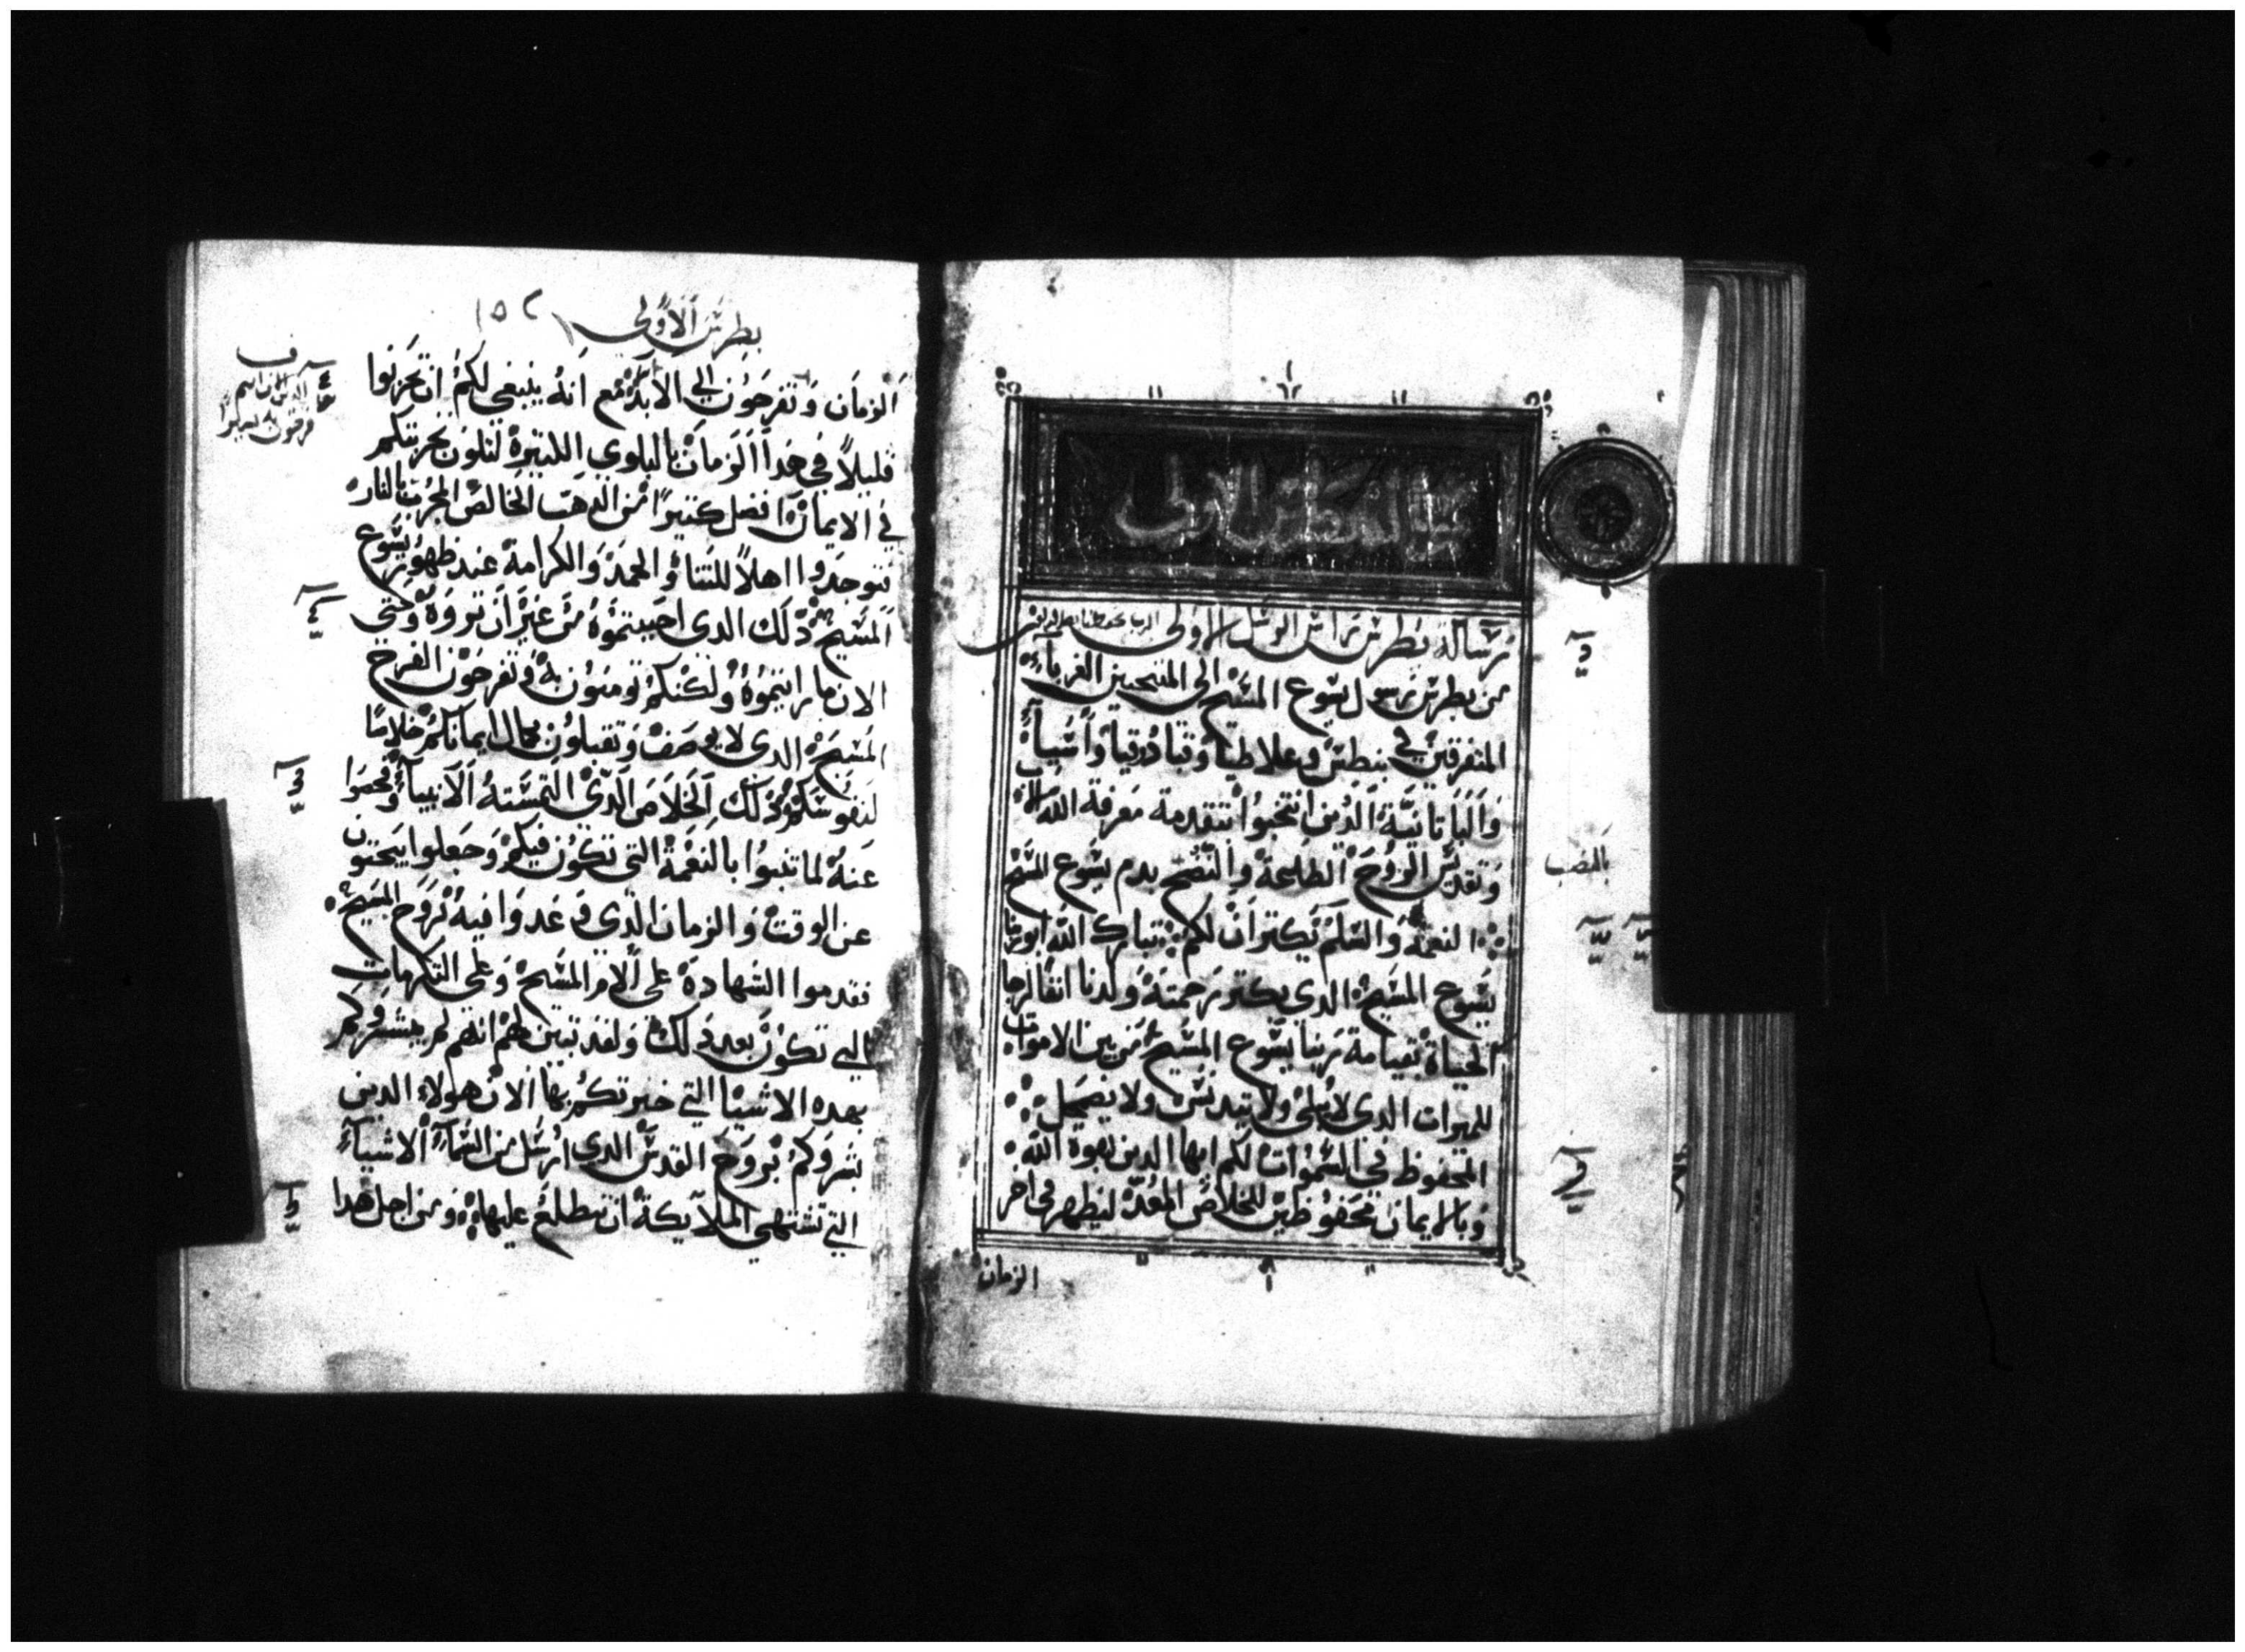 رسالة بطرس راس الرسل الاولى
من بطرس رسول يسوع المسيح الى المنتجبين الغرباء
المتفرقين في بنطس وغلاطيا وقبادوقيا واسيا
والباتانية الذين انتخبوا بتقدمة معرفة الله الاب
وتقديس الروح الطليحة والنضح بدم يسوع المسيح
النعمة والسلم يكثران لكم تبارك الله ابو ربنا
يسوع المسيح الدي بكثر رحمته ولدنا انفا لرجا
الحياة بقيامة ربنا يسوع المسيح من بين الاموات
للميرات الدى لا يبلى ولا يتدنس ولا يضمحل
المحفوظ في السموات لكم ايها الدين بقوة الله
وبالايمان محفوظين للخلاص المعد ليظهر في اخر
الزمان
بطرس الاولى ١٥٢
الزمان وتفرحون الي الابد مع انه ينبغي لكم ان تحزنوا
قليلا في هدا الزمان بالبلوي الكتيرة لتكون تجربتكم
في الايمان افضل كتيرا من الدهب الخالص المجرب بالنار
فتوجدوا اهلا للثنا والحمد والكرامة عند ظهور يسوع
المسيح دلك الدى احببتموه من غير ان تروه وحتي
الان ما رايتموه ولكنكم تومنون به وتفرحون الفرح
المسبح الدى لا يوصف وتقبلون بكمال ايمانكم خلاصا
لنفوسكم دلك الخلاص الدى التمسته الانبيا وفحصوا
عنه لما تنبوا بالنعمة التى تكون فيكم وجعلوا يبحتون
عن الوقت والزمان الدى وعدوا فيه بروح المسيح
فقدموا الشهادة على الام المسيح وعلى التكرمات
التي تكون بعد دلك ولقد تبين لهم انهم لم يبشروكم
بهده الاشيا التي خبرتكم بها الان هولاء الدين
بشروكم بروح القدس الدي ارسل من السماء الاشياء
التي تشتهي الملايكة ان تطلع عليها ومن اجل هدا